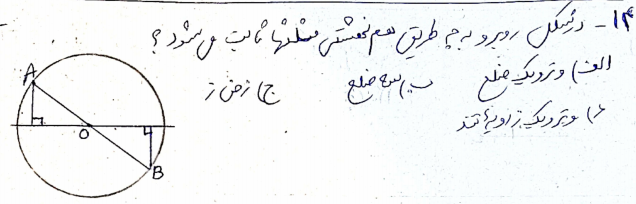 ۱۴- در شکل روبرو به چه طریق هم نهشتی مثلثها ثابت می شود؟
الف) وتر و یک ضلع ب) سه ضلع ج) ز ض ز
د) وتر و یک زاویه تند
A
O
B